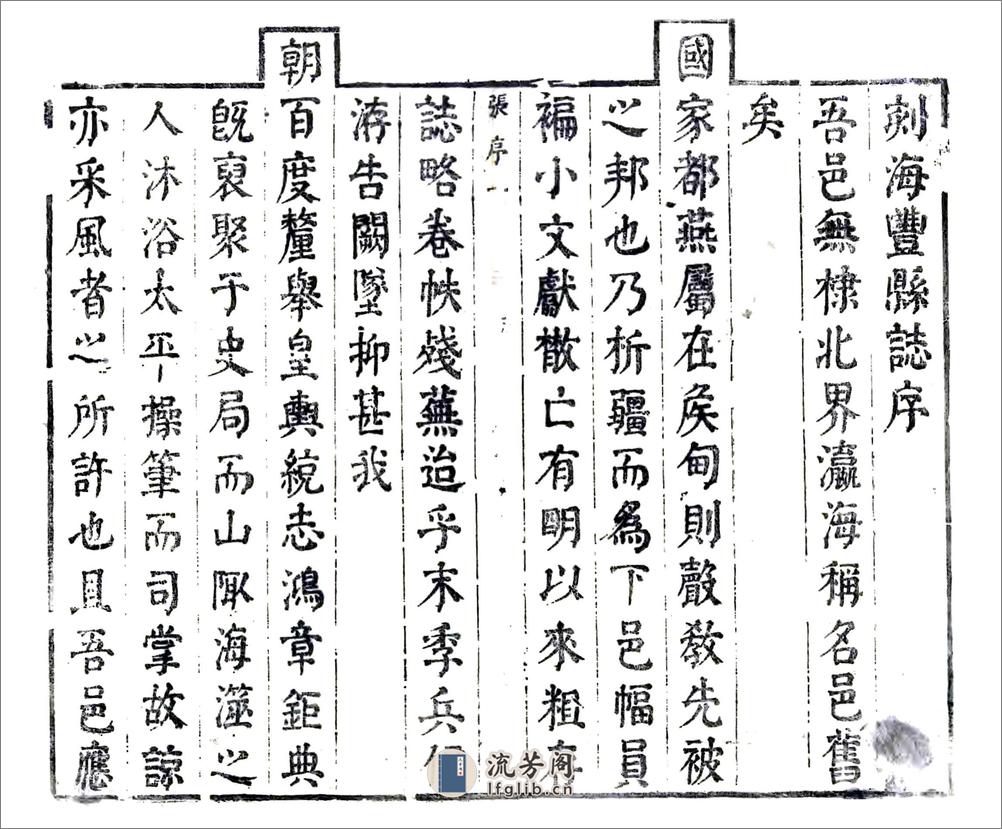 刻海豐縣誌序
吾邑無棣北界瀛海稱名邑舊
矣
國家都燕屬在矦甸則聲敎先被
之邦也乃析疆而爲下邑幅員
褊小文獻散亡有明以來粗存
張序 一
誌略卷帙殘蕪迨乎末季兵
洊告闕墜抑甚我
朝百度釐舉皇輿統志鴻章鉅典
旣裒聚于史局而山陬海澨之
人沐浴太平操筆而司掌故諒
亦采風者之所許也且吾邑應
流芳阁
lfglib.cn